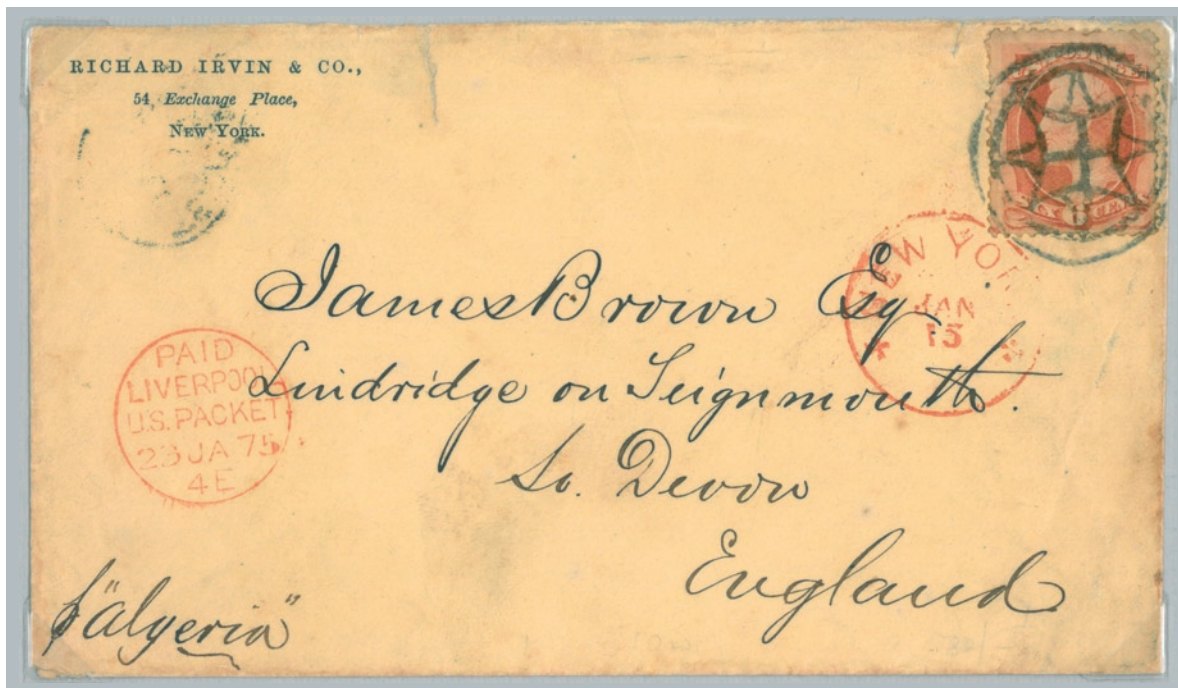 RICHARD IRVIN & CO.,
54 Exchange Place,
NEW YORK.
6
NEW YORK
JAN
15
James Brown Esq
Lindridge on Teignmouth.
So. Devon
England
PAID
LIVERPOOL
U.S. PACKET
23 JA 75
4E
p "Algeria"